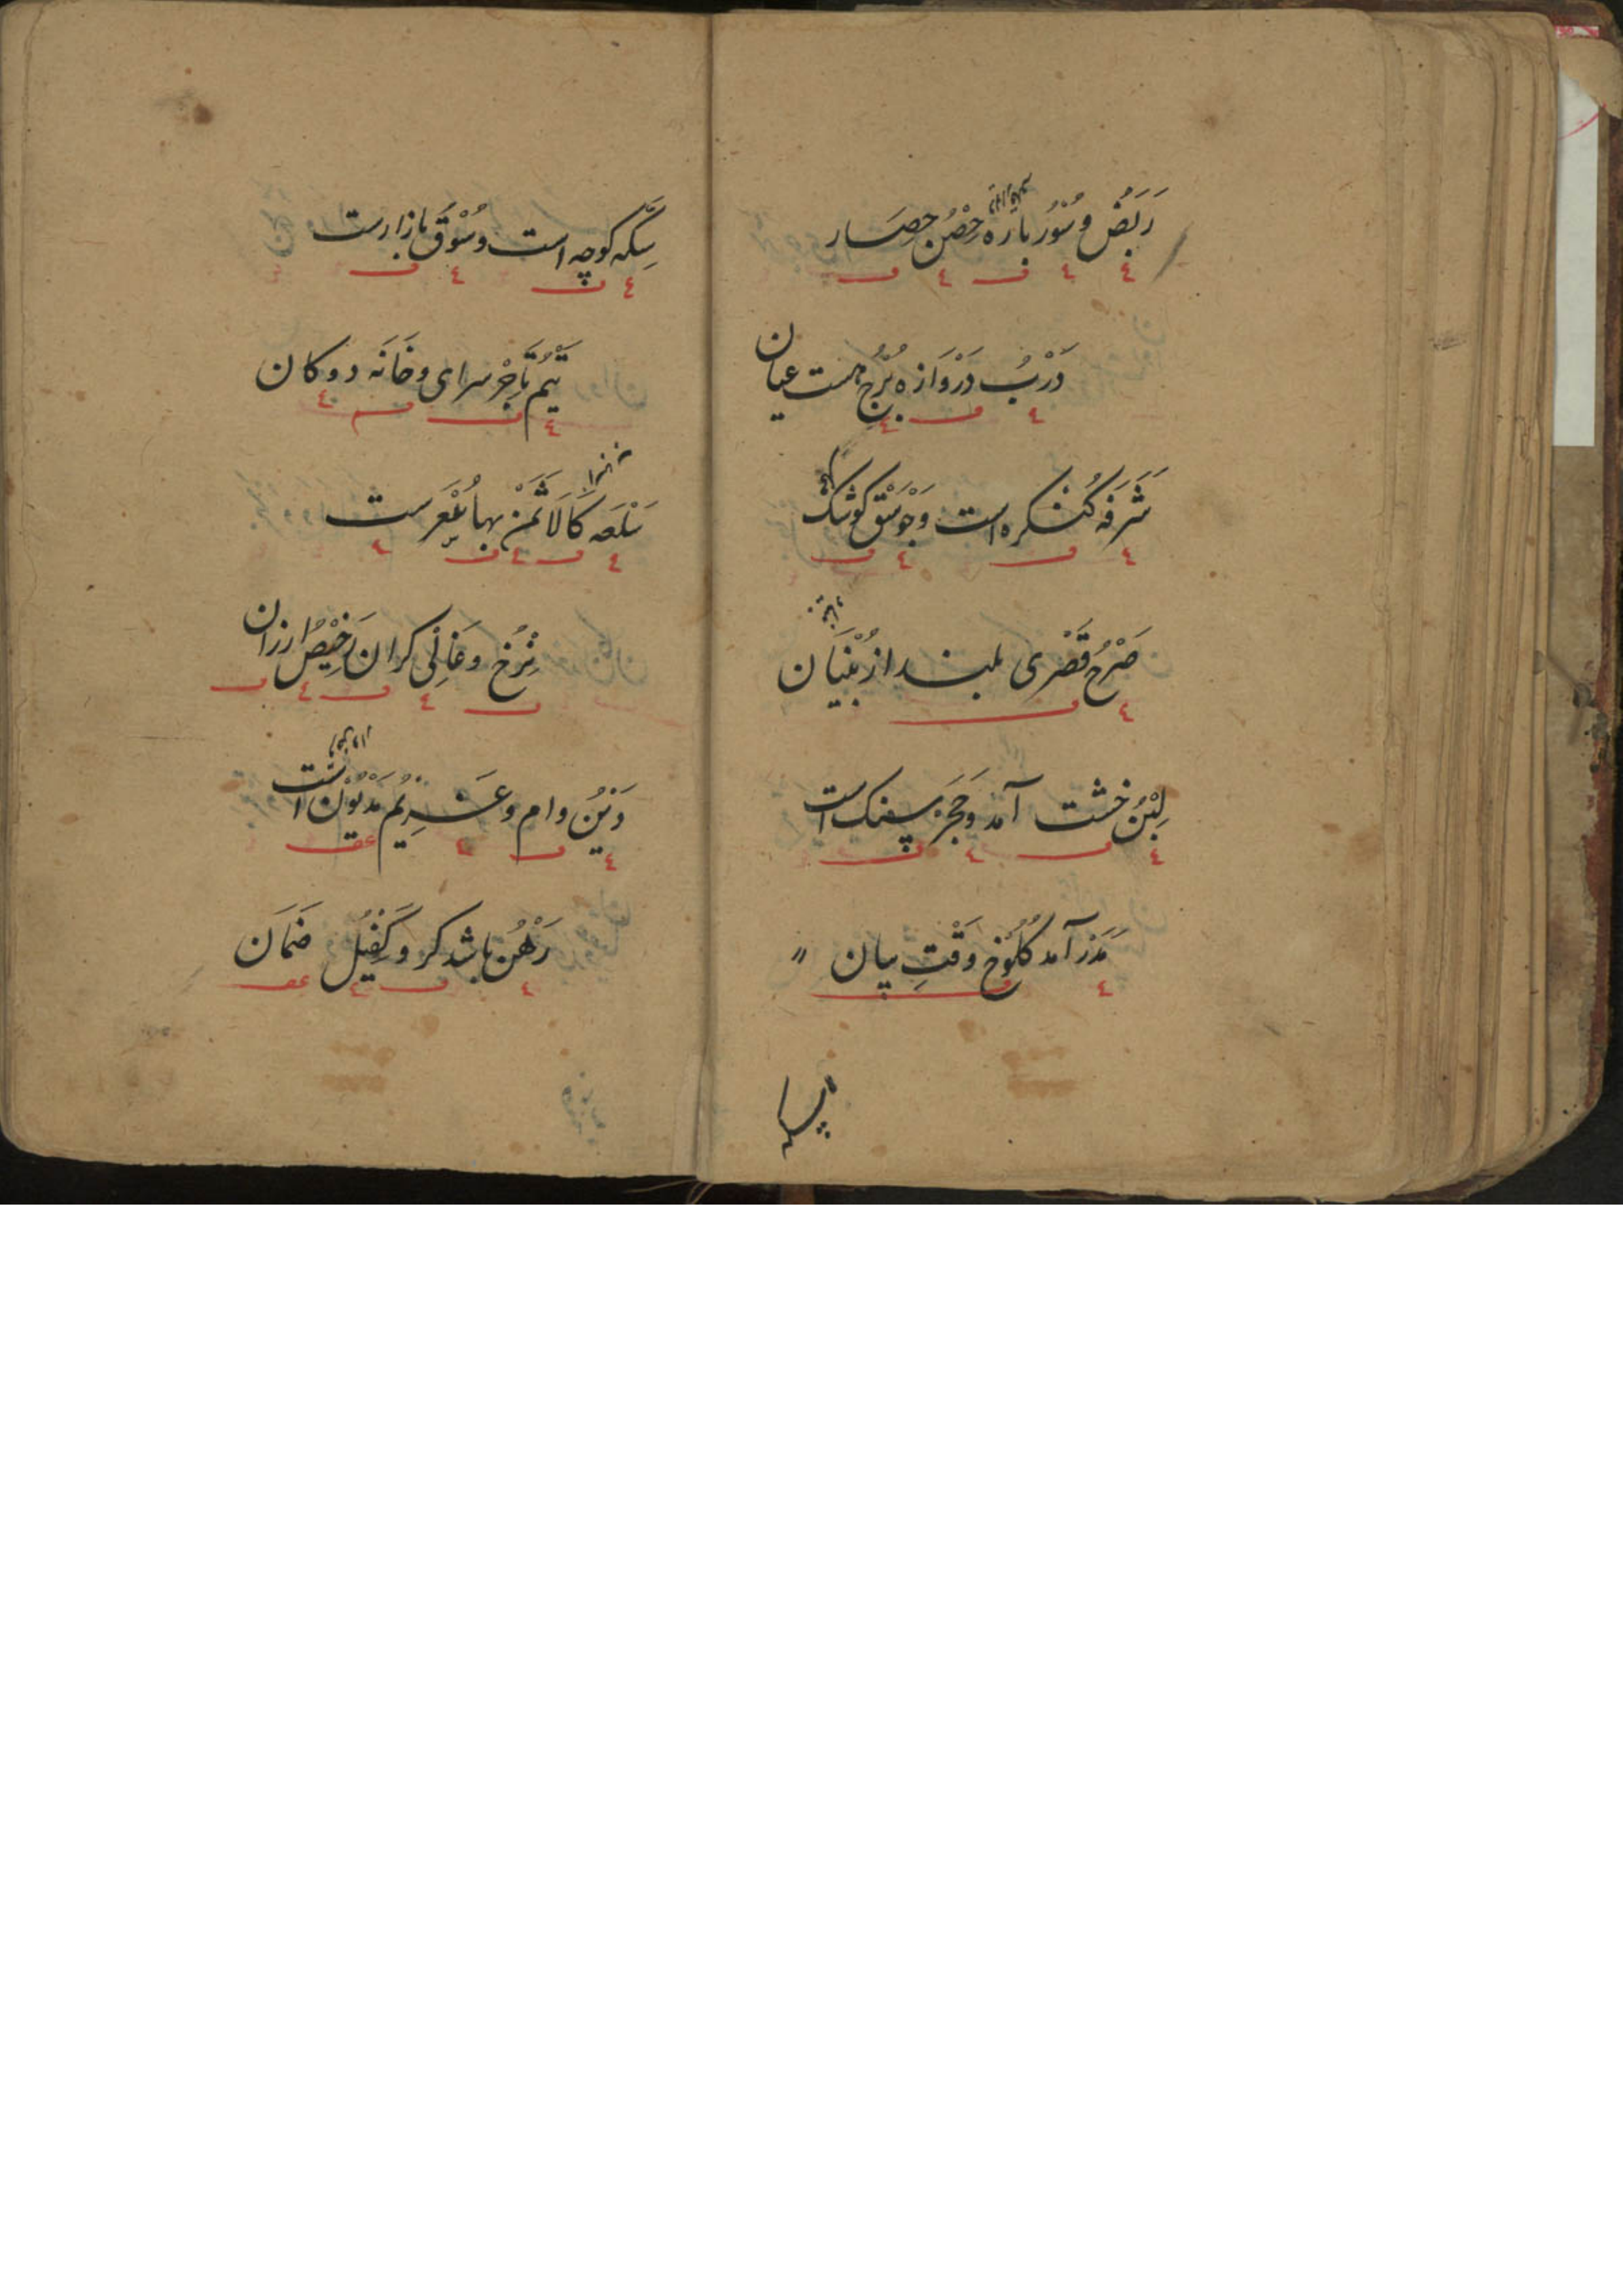 رَبَضْ وسُوْرُ بَارَه حِصْن حِصَار
دَرْبُ دَرْوَازه بُرْج هست عیان
شَرَفَه کُنْکره است وَجَوْسَق کوشک
صَرْحُ قَصْری بلند از بُنْیَان
لِبْنُ خشت آمد وَحَجَر سنک است
مَدَر آمد کُلُوْخ وَقْتِ بیان
سِکَّه کوچه است وسُوْق بازارست
تَیْم تَاجِرْ سرای وخَانَه دوکان
سَلْعَه کَالَا ثَمَنْ بها سِعْرست
نِرْخ وغَالِی کران رَخِیْصُ ارزان
دَیْنُ وام وغَرِیْم مَدْیُوْن است
رَهْنُ باشد کرو کَفِیْل ضَمَان